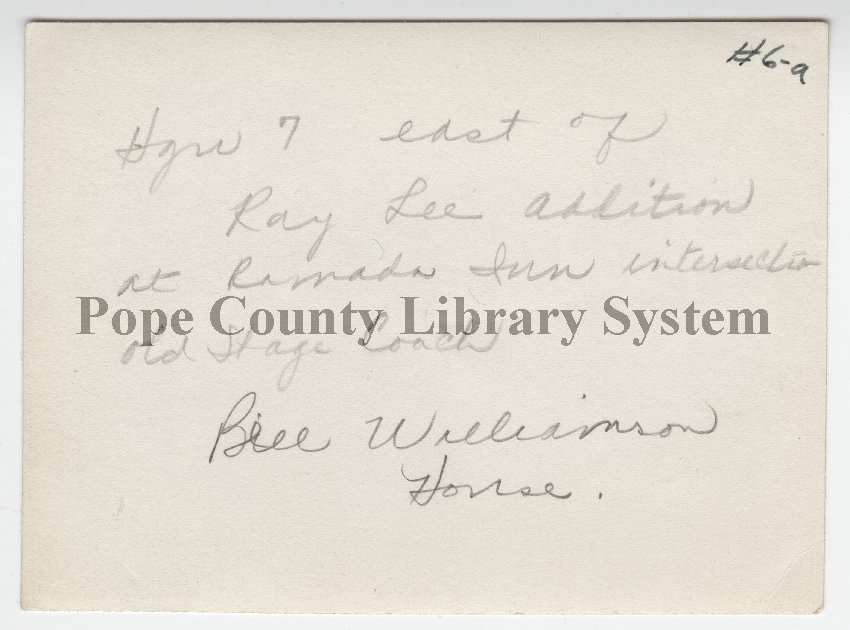 #6-a
Hgw 7 east of
Ray Lee Addition
at Ramada Inn intersection
Pope County Library System
old Stage Coach
Bill Williamson
House.